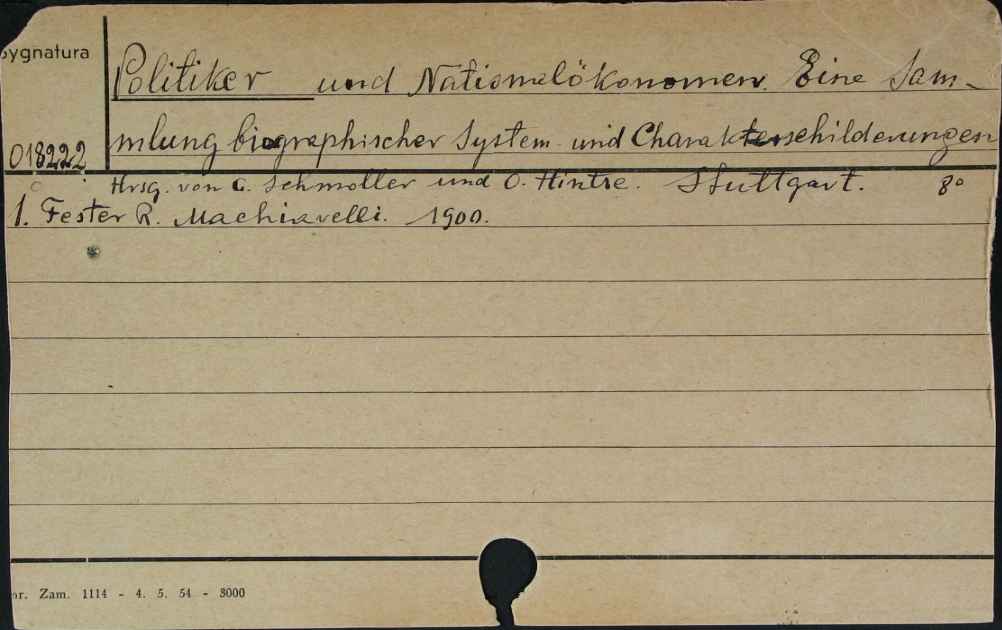 Sygnatura
Politiker und Nationalökonomen. Eine Sam-
018222 mlung biographischer System- und Charakterschilderungen
Hrsg. von G. Schmoller und O. Hintze. Stuttgart. 8°
1. Fester R. Machiavelli. 1900.
nr. Zam. 1114 - 4. 5. 54 - 3000